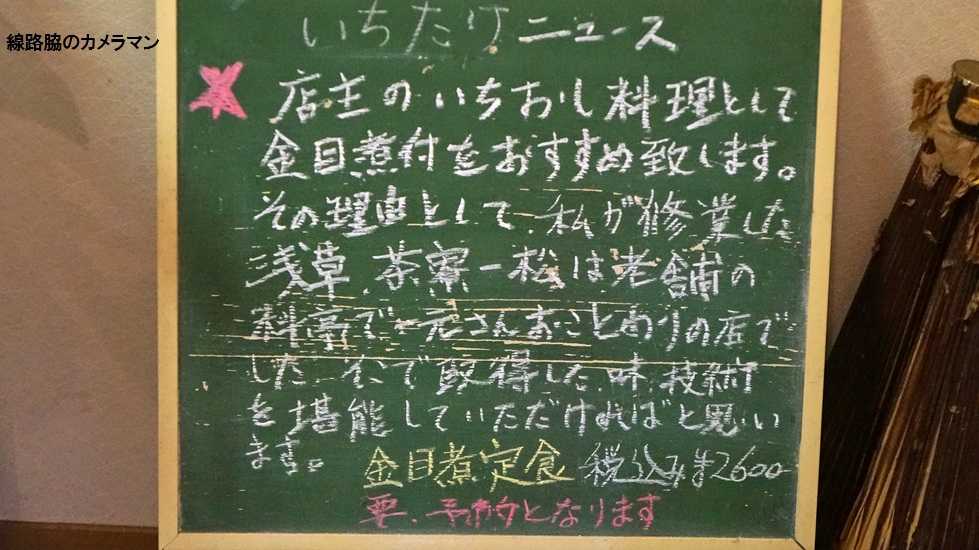 線路脇のカメラマン
いちたけニュース
★ 店主のいちおし料理として
金目煮付をおすすめ致します。
その理由として、私が修業した
浅草、茶寮一松は老舗の
料亭で一元さんおことわりの店で
した。そこで取得した味、技術
を堪能していただければと思い
ます。
金目煮定食 税込み¥2600-
要、予約となります